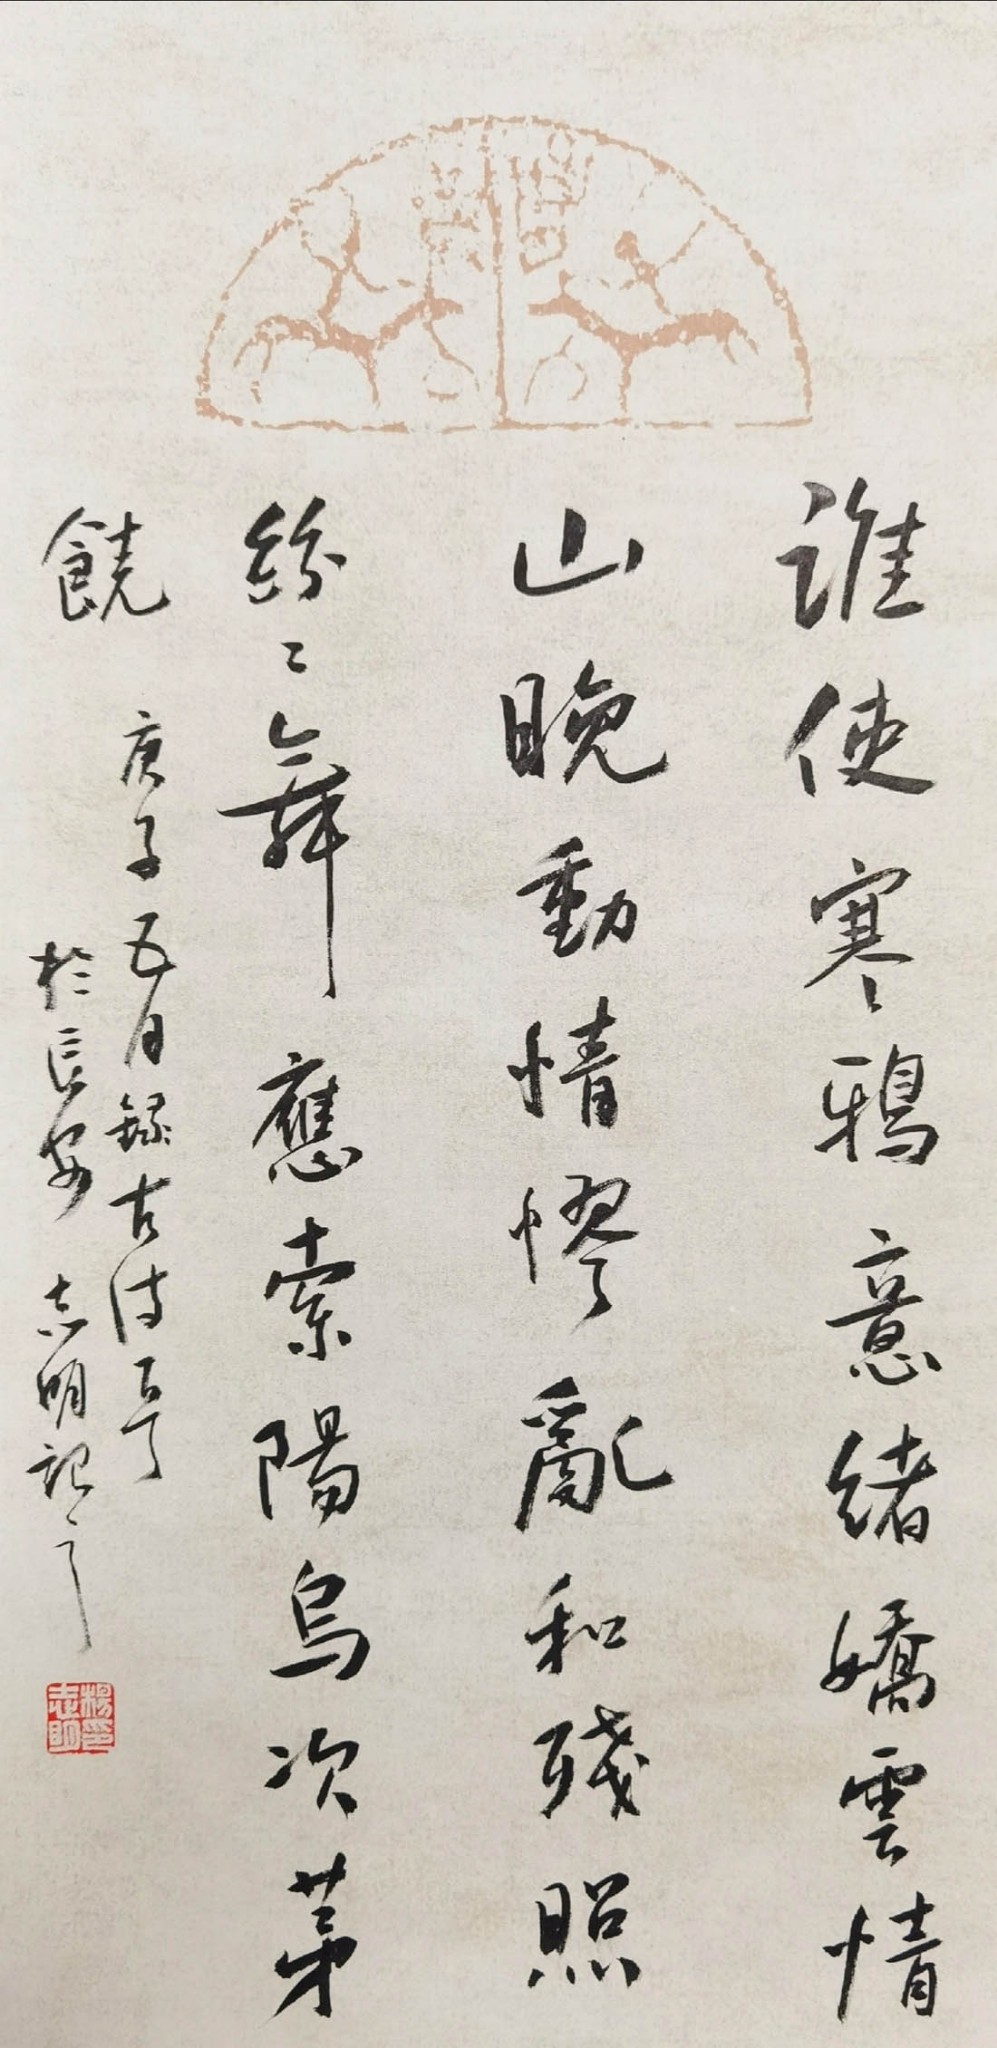 誰使寒鴉意緒嬌雲情
山晚動情憀亂和殘照
紛〻舞應索陽烏次苐
饒
庚子五月錄古詩一首
於長安 志明記之
楊志明印